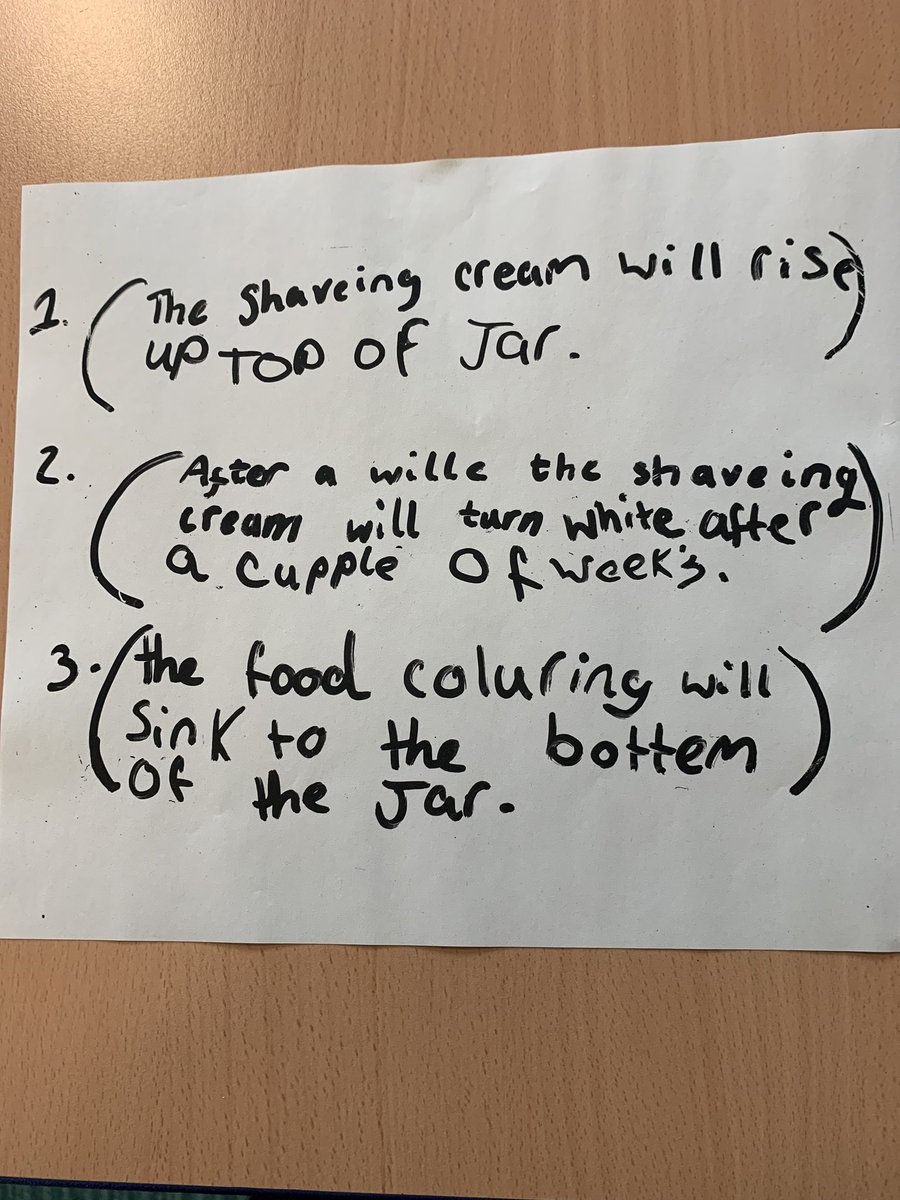 1. (The shaveing cream will rise)
up TOP OF Jar.
2. (After a wille the shaveing)
cream will turn white after
a cupple Of week's.
3. (the food coluring will)
Sink to the bottem
Of the Jar.